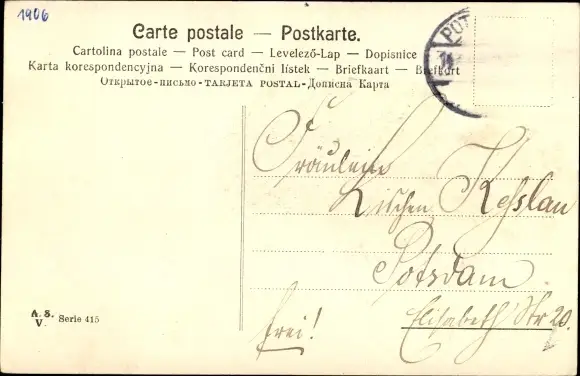 1906
Carte postale — Postkarte.
Cartolina postale — Post card — Levelező-Lap — Dopisnice
Karta korespondencyjna — Korespondenční lístek — Briefkaart — Brefkort
Открытое-письмо-TARJETA POSTAL-Дописна Карта
POT
Fräulein
Lischen Kesslau
Potsdam
Elisabeth Str 20.
frei!
A. S.
V. Serie 415